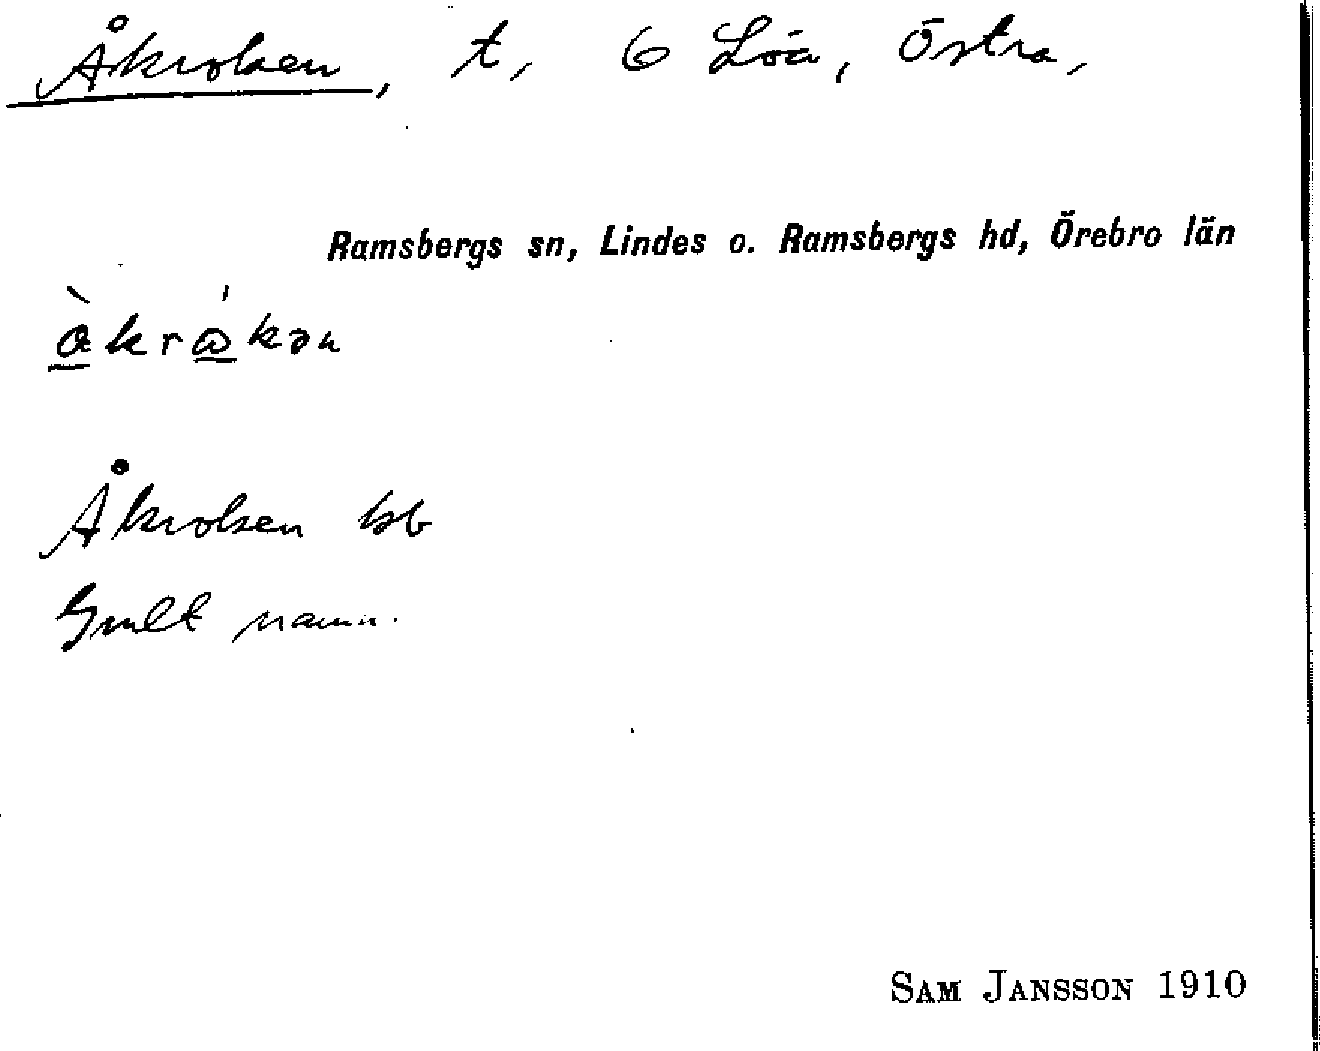 Åkroken, t, 6 Löa, Östra,
Ramsbergs sn, Lindes o. Ramsbergs hd, Örebro län
àkrɷ́kən
Åkroken hb
Gmlt namn.
SAM JANSSON 1910